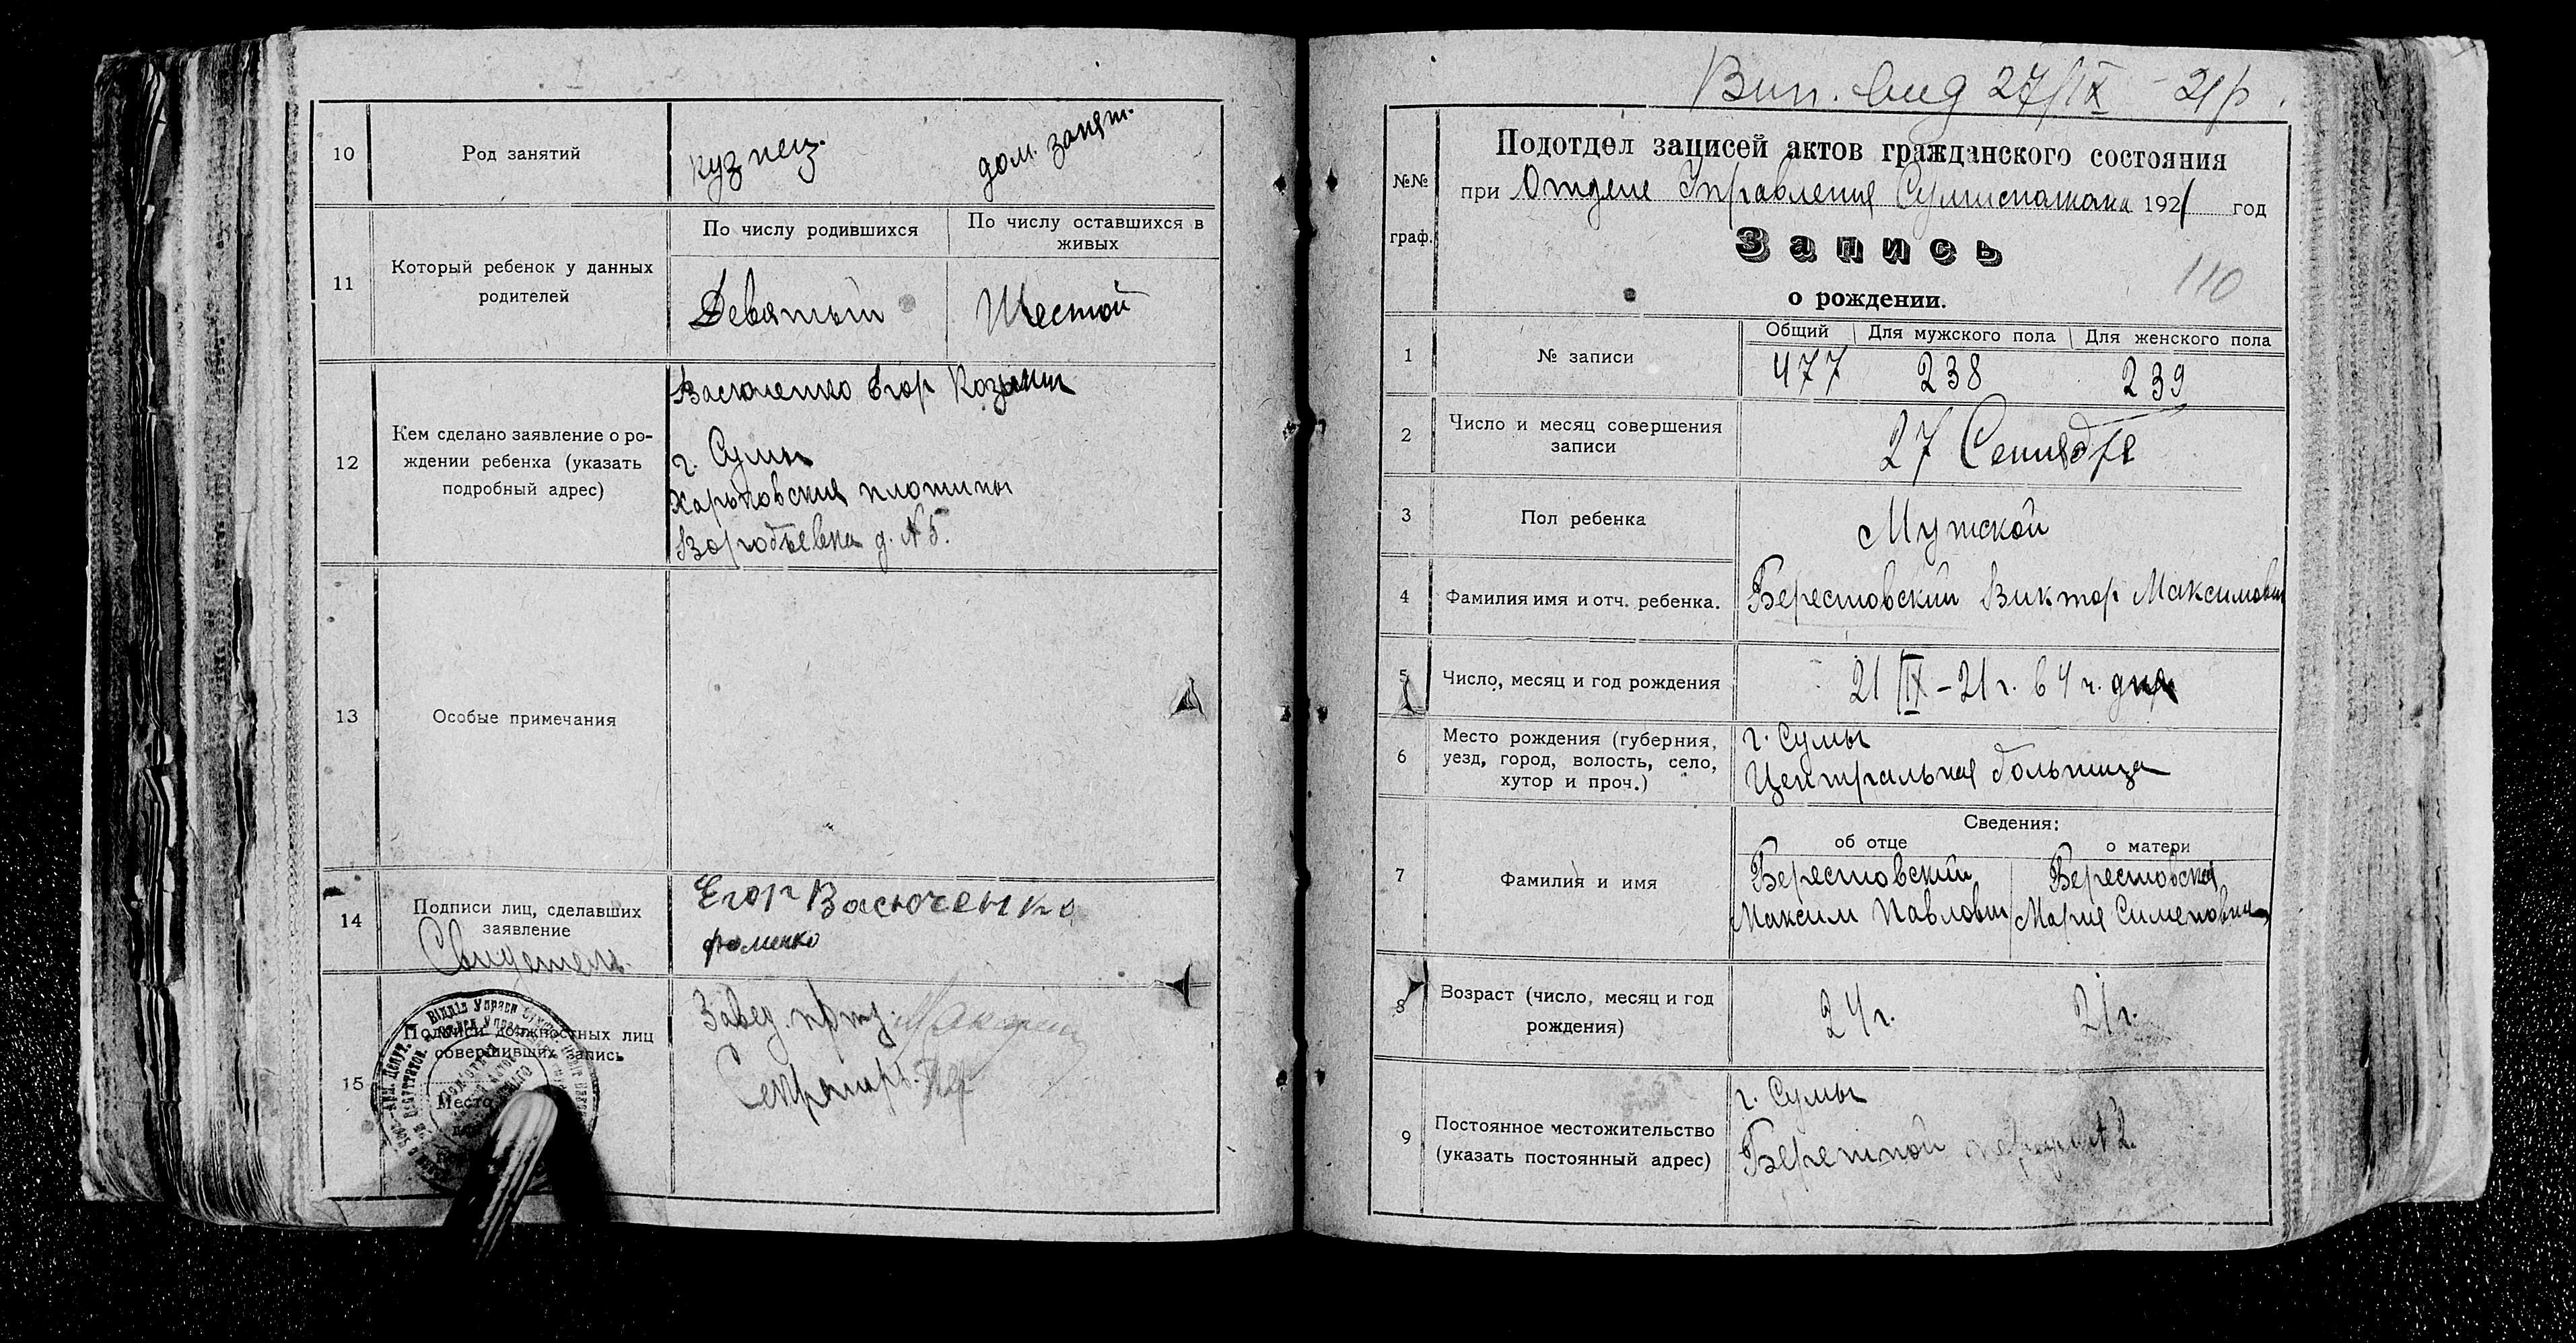 10
Род занятий
кузнец.
дом. занят.
11
Который ребенок у данных
родителей
По числу родившихся
По числу оставшихся в
живых
Девятый
Шестой
12
Кем сделано заявление о ро-
ждении ребенка (указать
подробный адрес)
Васюченко Егор Козьмич
г. Сумы
Харьковския плотины
Воробьевка д. № 5.
13
Особые примечания
14
Подписи лиц, сделавших
заявление
Свидетель
Егор Васюченко
Фоменко
15
Подписи должностных лиц
совершивших запись
Место
Завед.
Секретарь
Вип. вид 27/IX - 21 р.
№№
граф.
Подотдел записей актов гражданского состояния
при Отделе Управления 1921 год
Запись
110
о рождении.
1
№ записи
Общий
Для мужского пола
Для женского пола
477
238
239
2
Число и месяц совершения
записи
27 Сентября
3
Пол ребенка
Мужской
4
Фамилия имя и отч. ребенка.
Берестовский Виктор Максимович
5
Число, месяц и год рождения
21/IX - 21 г. в 4 ч. дня
6
Место рождения (губерния,
уезд, город, волость, село,
хутор и проч.)
г. Сумы
Центральная больница
7
Фамилия и имя
Сведения:
об отце
о матери
Берестовский
Максим Павлович
Берестовская
Мария Сименовна
8
Возраст (число, месяц и год
рождения)
24 г.
21 г.
9
Постоянное местожительство
(указать постоянный адрес)
г. Сумы
Береговой № 2.